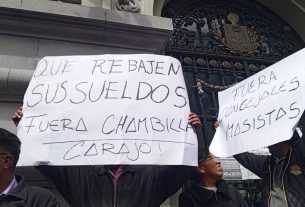 QUE REBAJEN
SUS SUELDOS
FUERA CHAMBILLA
CARAJO!
FUERA
CONCEJALES
MASISTAS